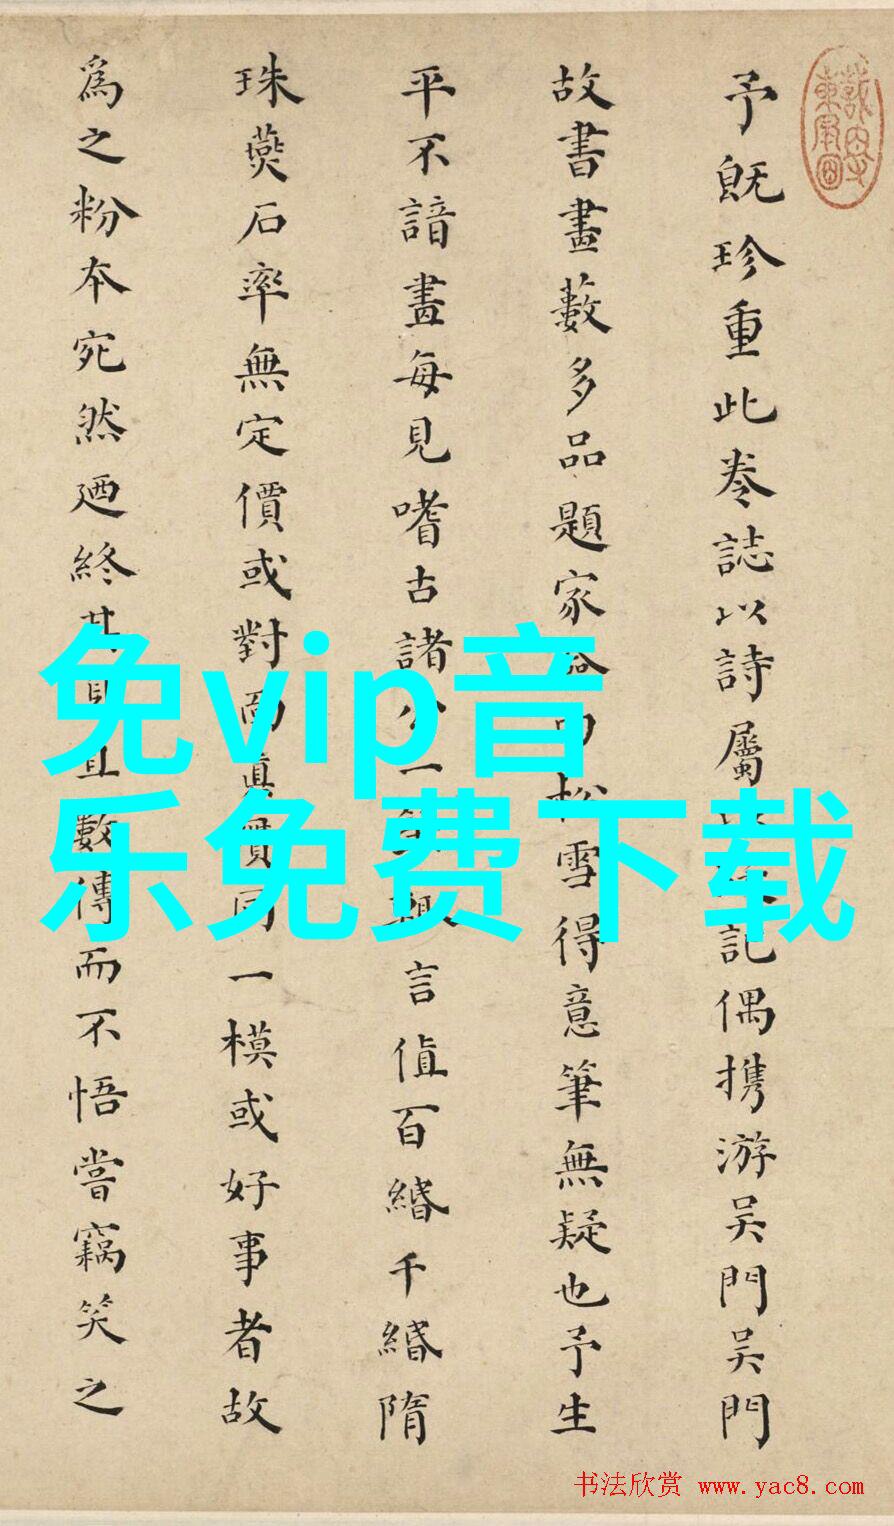 予既珍重此卷誌以詩屬記偶携游吳門吳門
故書畫藪多品題家曰松雪得意筆無疑也予生
平不諳畫每見嗜古諸公一輒言值百緡千緡隋
珠燕石率無定價或對面真贗同一模或好事者故
為之粉本宛然廼終其身且數傳而不悟嘗竊笑之
免vip音
乐免费下载
书法欣赏 www.yac8.com